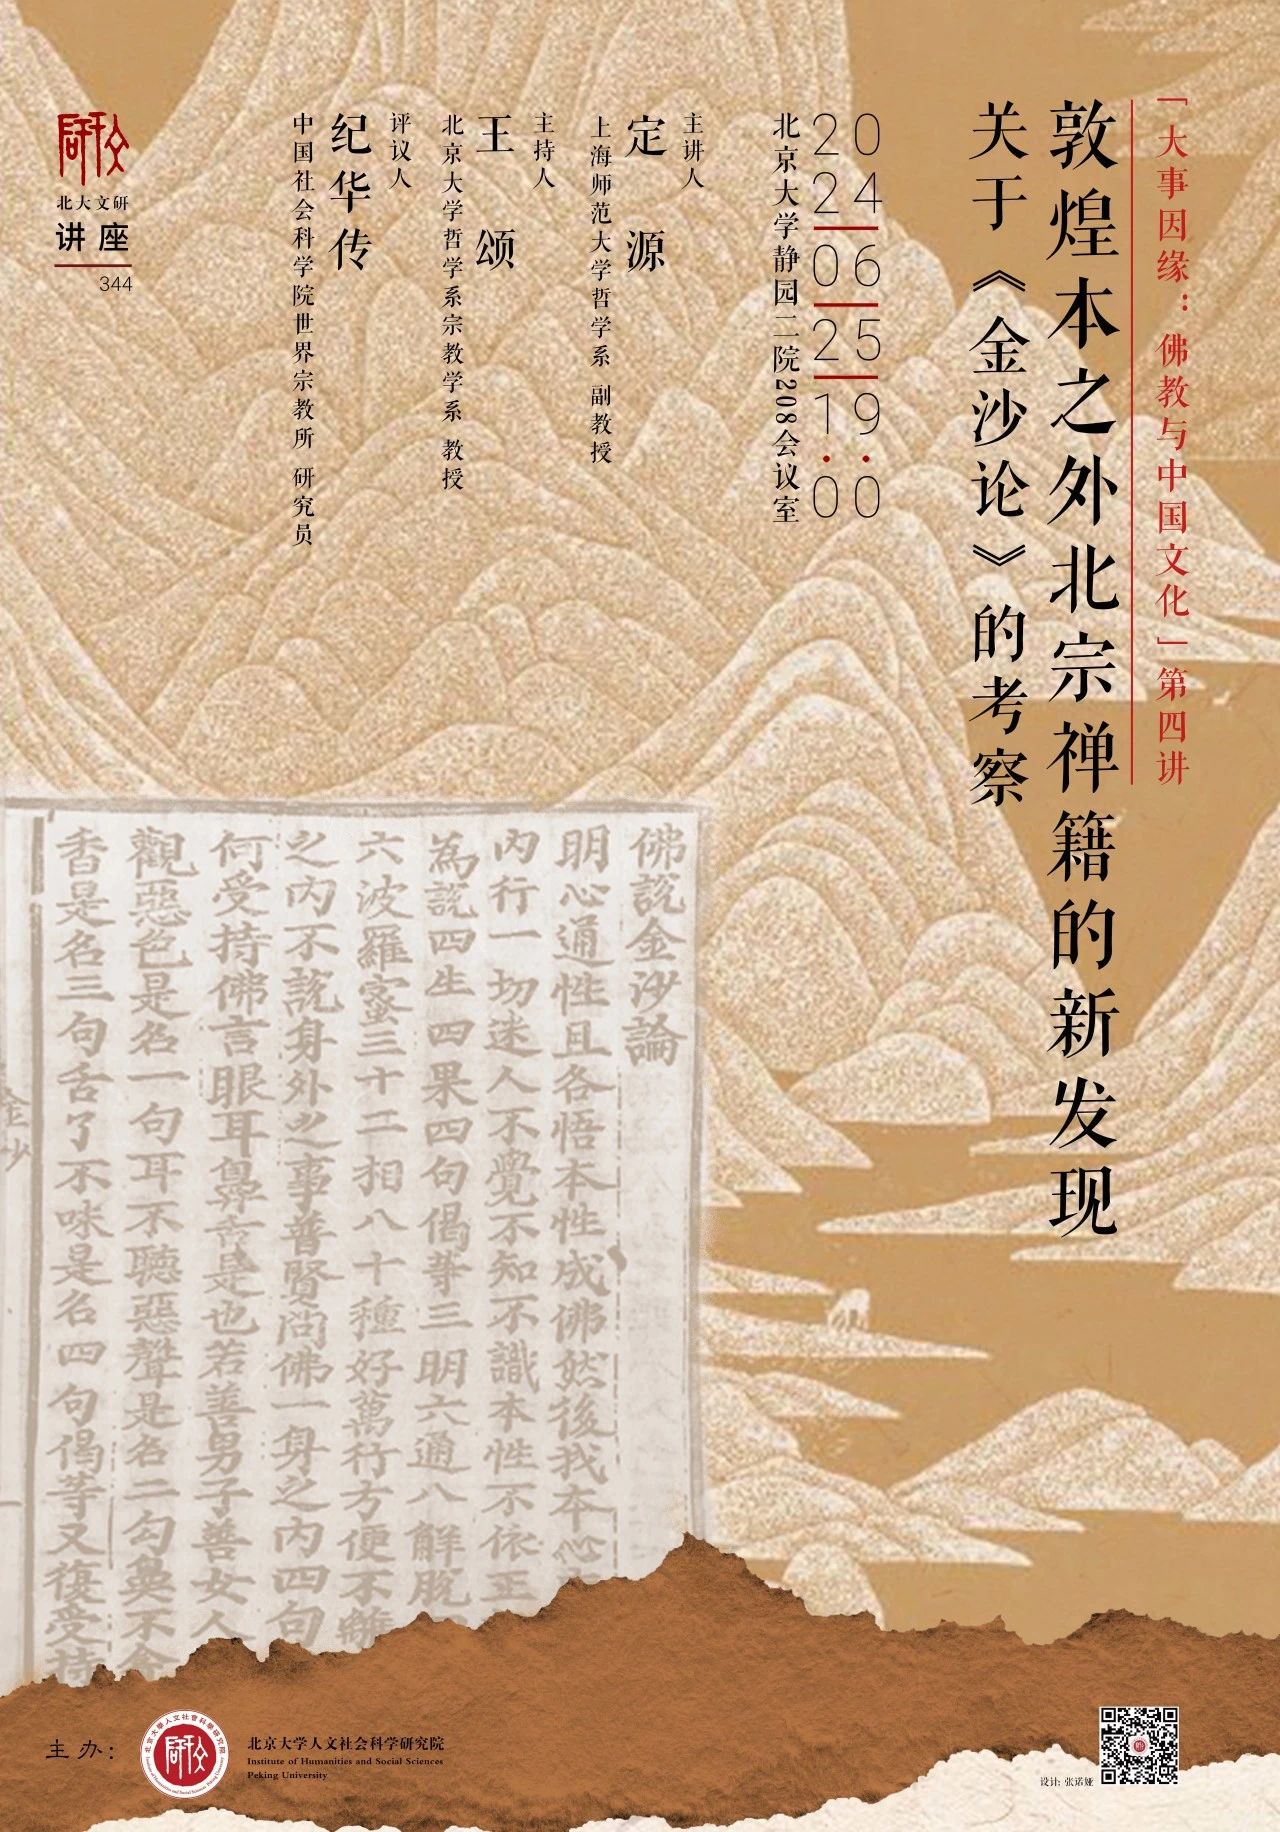 「大事因缘：佛教与中国文化」第四讲
敦煌本之外北宗禅籍的新发现
关于《金沙论》的考察
2024
06
25
19:00
北京大学静园二院208会议室
主讲人
定源
上海师范大学哲学系 副教授
主持人
王颂
北京大学哲学系宗教学系 教授
评议人
纪华传
中国社会科学院世界宗教所 研究员
北大文研
讲座
344
佛說金沙論
明心通性且各悟本性成佛然後我本心
內行一切迷人不覺不知不識本性不依王
為說四生四果四句偈等三明六通八解脫
波羅蜜三十二相八十種好萬行方便不離
之內不說身外之事普賢問佛一身之內四句
何受持佛言眼耳鼻舌是也若善男子善女人
觀惡色是名一句耳不聽惡聲是名二勾鼻不
香是名三句舌了不味是名四句偈等又復受持
金沙
主办：
北京大学人文社会科学研究院
Institute of Humanities and Social Sciences
Peking University
设计: 张诺娅